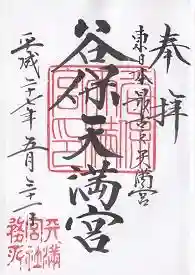 奉拝
東日本最古天満宮
谷保天満宮
平成二十七年五月三十一日
天満宮社務所